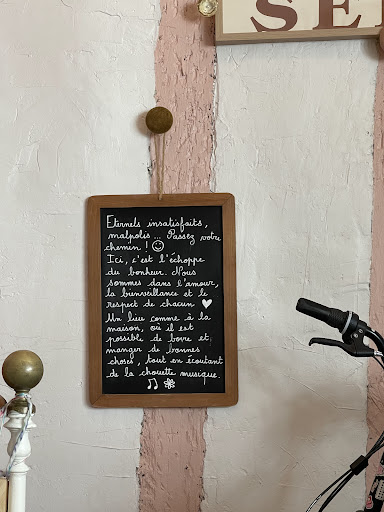 SE
Eternels insatisfaits,
malpolis ... Passez votre
chemin ! ☺
Ici, c'est l'échoppe
du bonheur. Nous
sommes dans l'amour,
la bienveillance et le
respect de chacun ♥
Un lieu comme à la
maison, où il est
possible de boire et
manger de bonnes
choses, tout en écoutant
de la chouette musique.